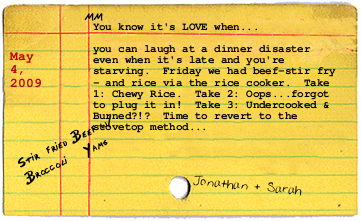 MM
You know it's LOVE when...
you can laugh at a dinner disaster
even when it's late and you're
starving. Friday we had beef-stir fry
- and rice via the rice cooker. Take
1: Chewy Rice. Take 2: Oops...forgot
to plug it in! Take 3: Undercooked &
Burned?!? Time to revert to the
stovetop method...
May
4,
2009
STIR FRIED BEEF
BROCCOLI YAMS
Jonathan + Sarah